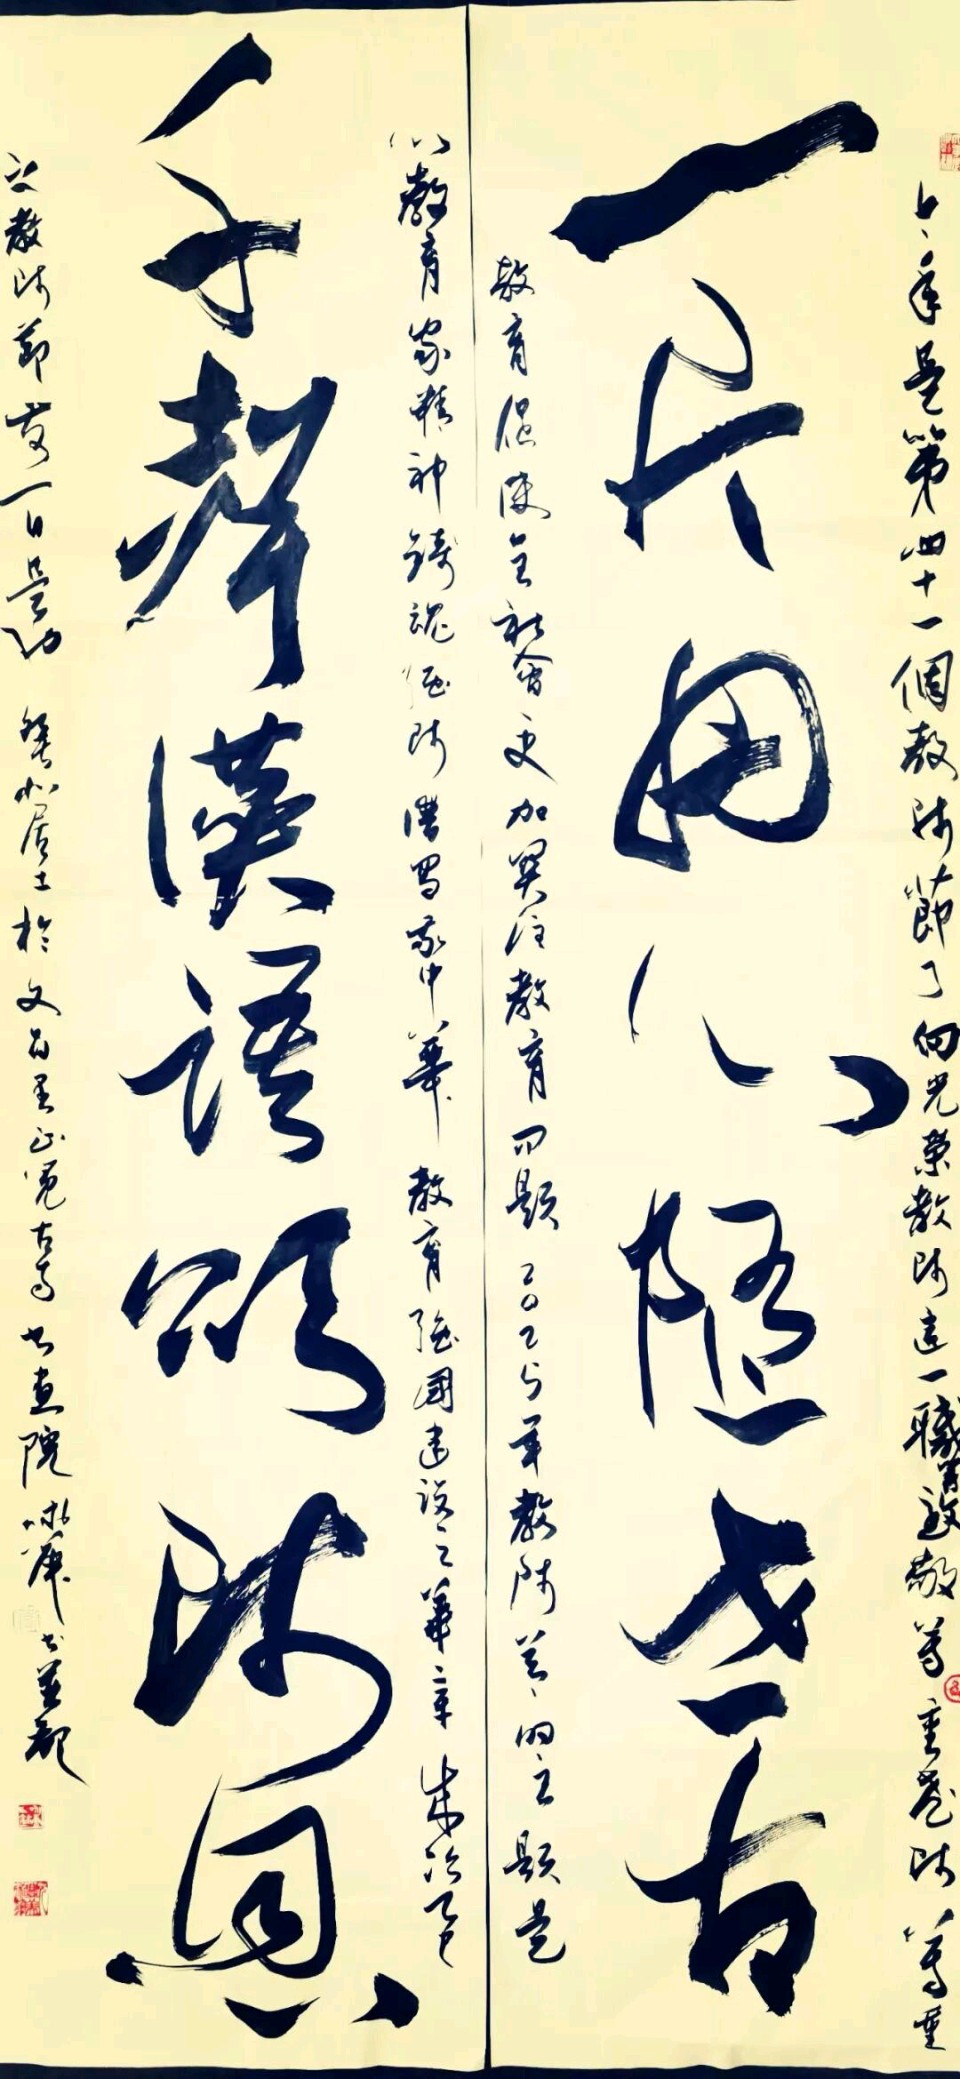 今年是第四十一個教師節了向光榮教師這一職業致敬尊重老師尊重
一片丹心隨世古
教育促使全社會更加關注教育問題二0二五年教師節的主題是
以教育家精神鑄魂強師譜寫我中華教育強國建設之華章 乙巳
千聲漢語頌師恩
之教師節前一日晨 居士於文昌里正覺古寺書畫院 書並記